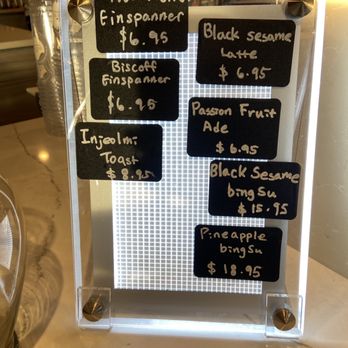 Einspanner
$6.95
Biscoff
Einspanner
$6.95
Injeolmi
Toast
$8.95
Black sesame
Latte
$6.95
Passion Fruit
Ade
$6.95
Black Sesame
bingsu
$15.95
Pineapple
bingsu
$18.95